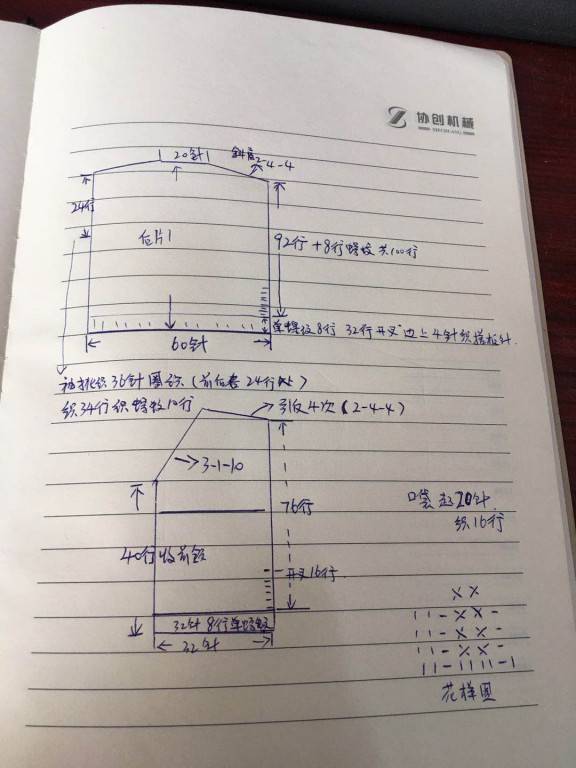 协创机械
20针
斜肩2-4-4
24行
后片1
92行+8行螺纹共100行
单螺纹8行 32行开叉 边上4针织搓板针
60针
袖挑织36针圈织(前后各24行处)
织34行织螺纹10行
引反4次(2-4-4)
3-1-10
76行
口袋起20针
织16行
40行收前领
开叉16行
32针8行单螺纹
32针
××
11-××-
11-××-
11-××-
11-1111-1
花样图